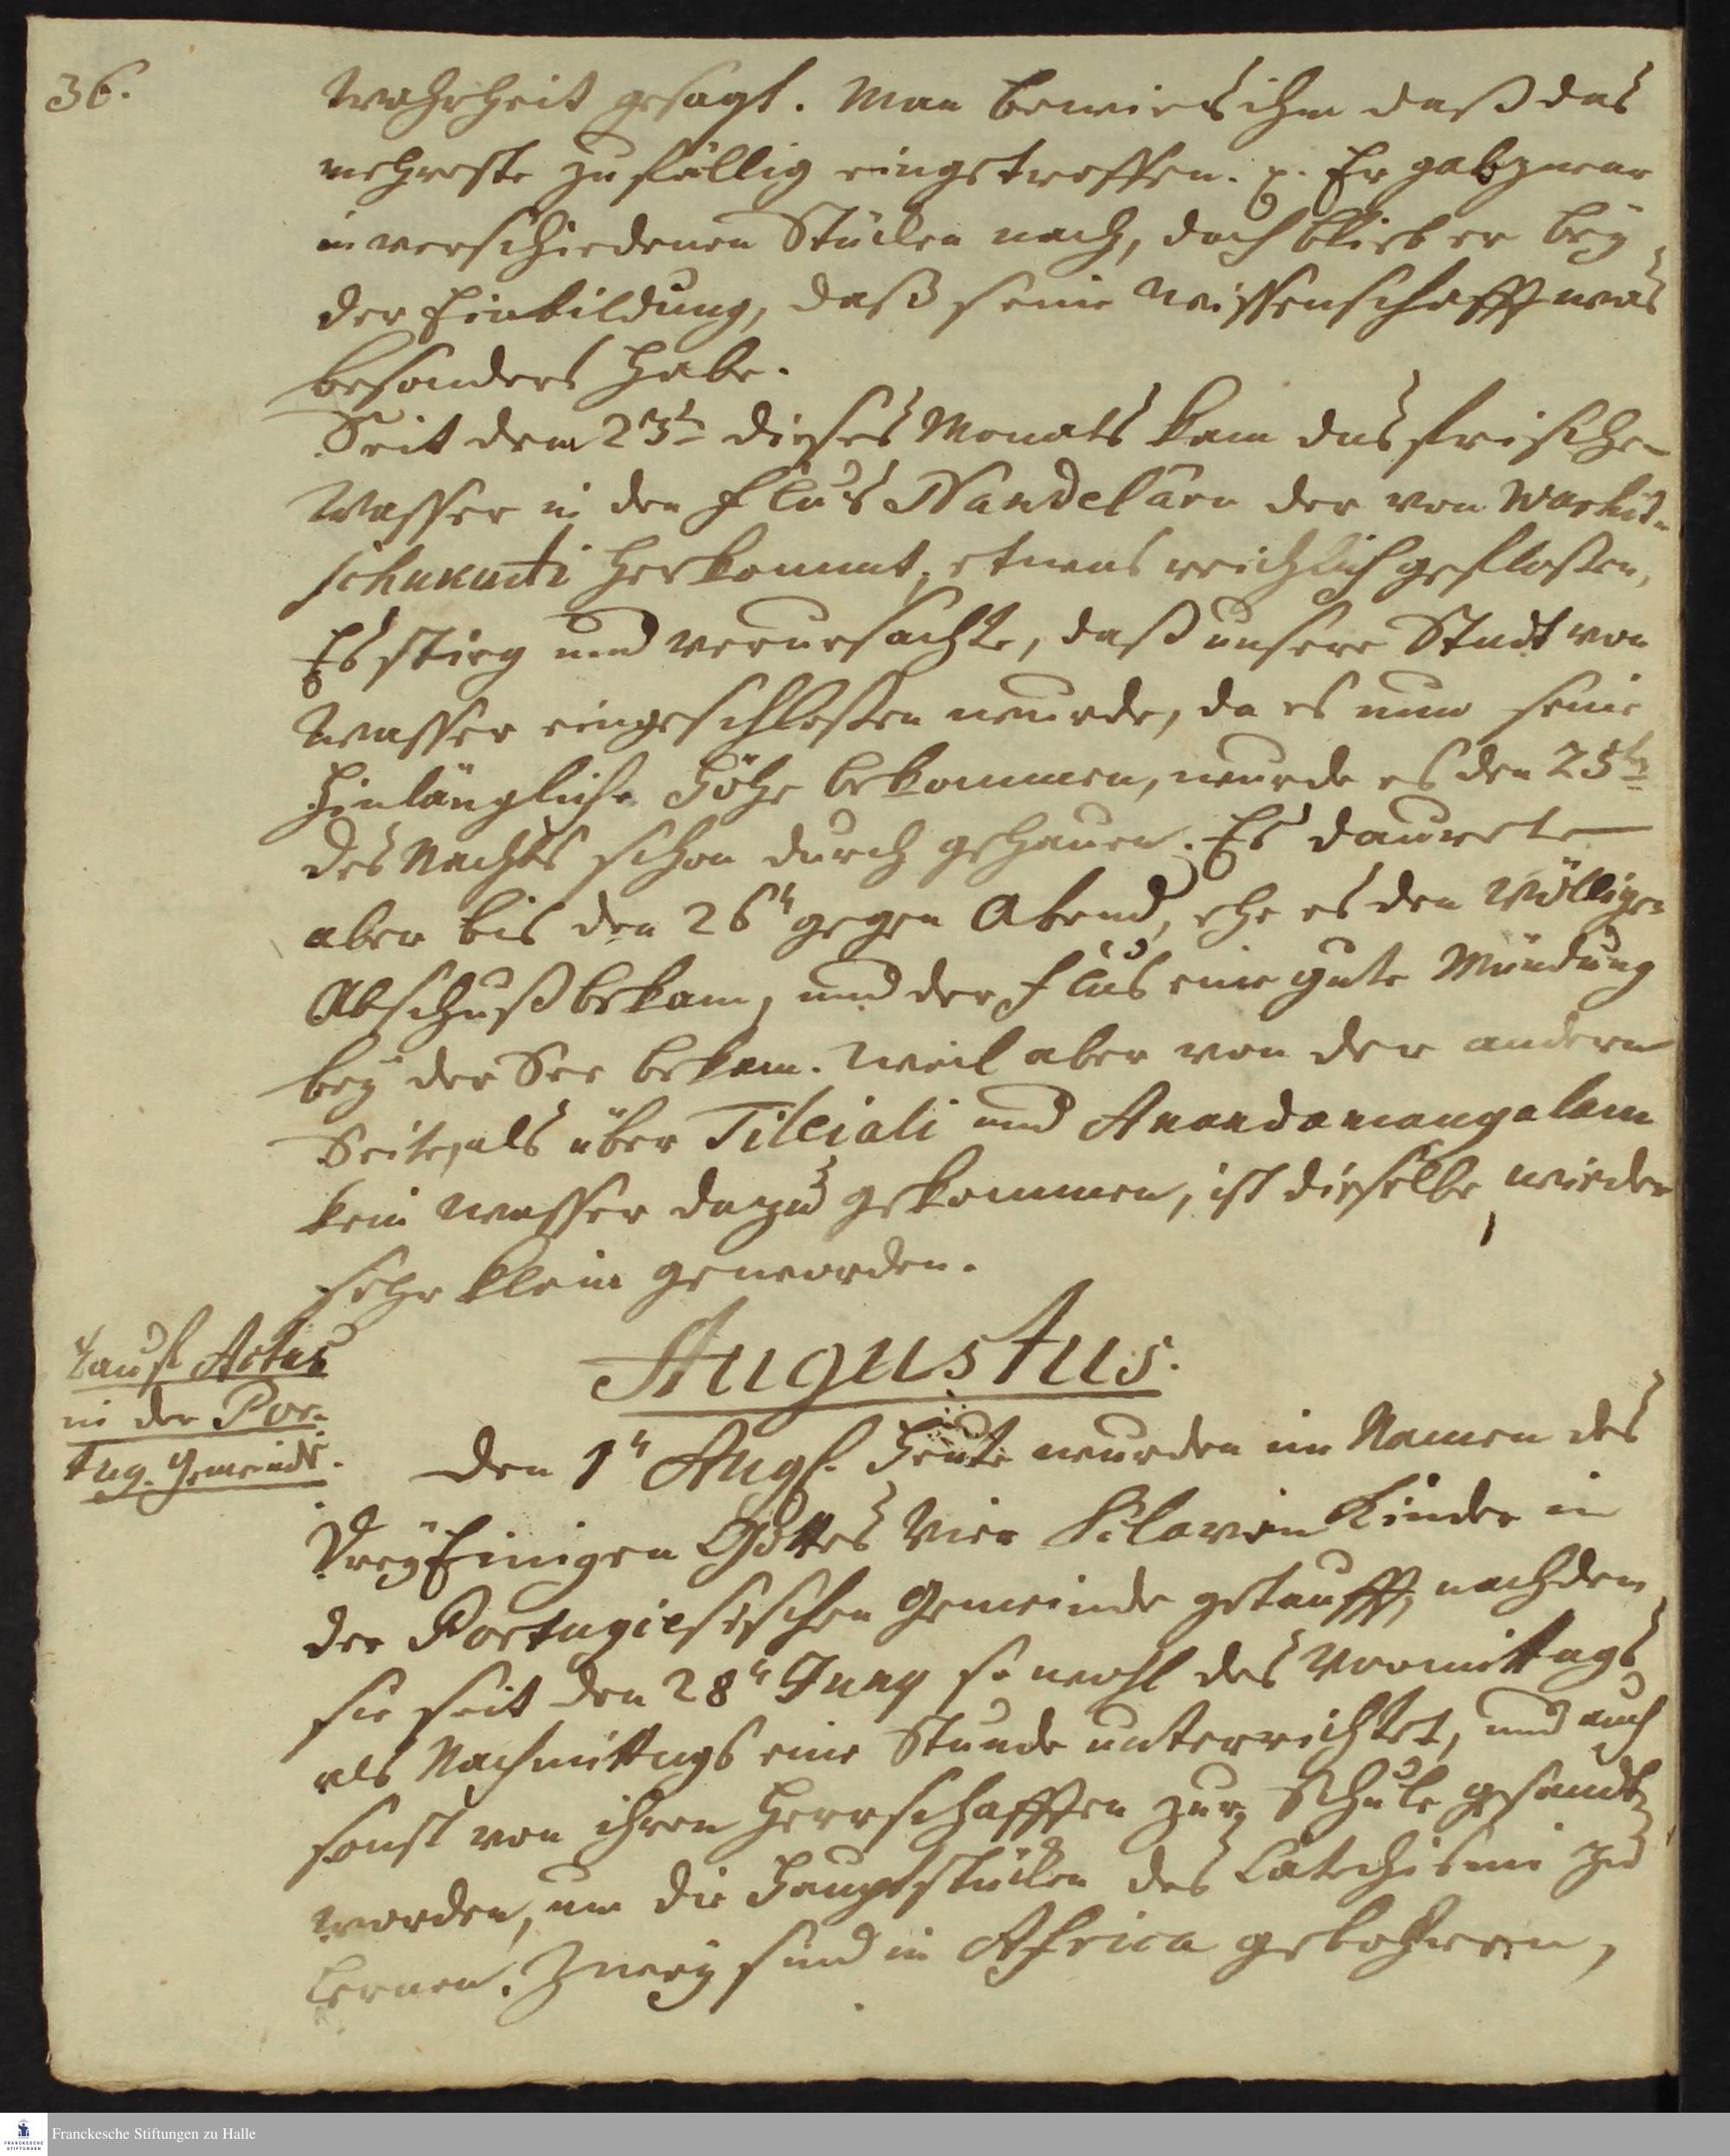 36.
Wahrheit gesagt. Man bewies ihm daß das
mehreste zufällig eingetroffen. p. Er gab zwar
in verschiedenen Stücken nach, doch blieb er bey
der Einbildung, daß seine Wissenschafft was
besonders habe.
Seit dem 23tn dieses Monats kam das frische
Wasser in den Fluß Nandelarn der von Warkid-
schukudi herkommt, etwas reichlich gefloßen,
Es stieg und verursachte, daß unsere Stadt von
Wasser eingeschloßen wurde, da es nun seine
hinlängliche Höhe bekommen, wurde es den 25tn
des Nachts schon durch gehauen. Es daurete
aber bis den 26n gegen Abend, ehe es den völligen
Abschuß bekam, und der Fluß eine gute Mündung
bey der See bekam. Weil aber von der andern
Seite, als über Tilleiali und Anandamangalam
kein Wasser dazu gekommen, ist dieselbe wieder
sehr klein geworden.
Augustus.
Tauf Actus
in der Por-
tug. Gemeinde.
Den 1n Augs. Heute wurden im Namen des
DreyEinigen Gottes vier Sclaven Kinder in
der Portugiesischen Gemeinde getaufft, nachdem
sie seit den 28n Juny so wohl des Vormittags
als Nachmittags eine Stunde unterrichtet, und auch
sonst von ihren Herrschafften zur Schule gesandt
worden, um die Hauptstücken des Catechismi zu
lernen. Zwey sind in Africa gebohren,
Franckesche Stiftungen zu Halle
FRANCKESCHE
STIFTUNGEN